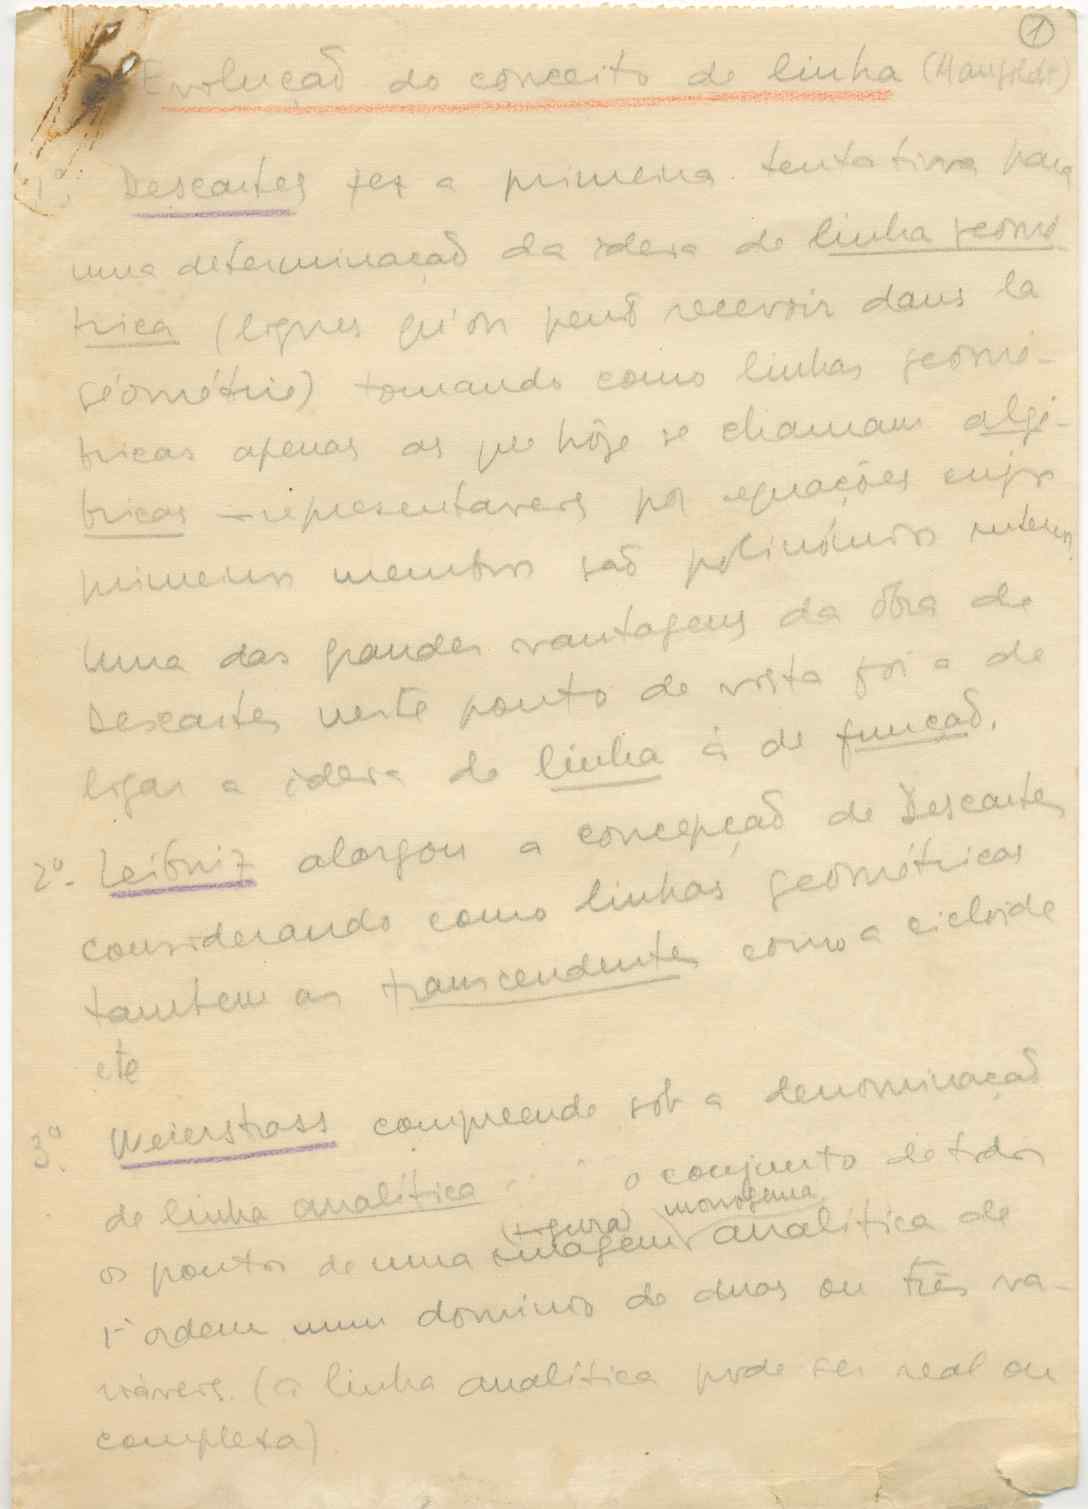 1
Evolução do conceito de linha (Mangoldt)
1º. Descartes fez a primeira tentativa para
uma determinação da ideia de linha geomé
trica (lignes qu'on peut recevoir dans la
géométrie) tomando como linhas geomé-
tricas apenas as que hôje se chamam algé-
bricas – representaveis por equações cujos
primeiros membros são polinómios inteiros.
Uma das grandes vantagens da obra de
Descartes neste ponto de vista foi a de
ligar a ideia de linha à de função.
2º- Leibniz alargou a concepção de Descartes
considerando como linhas geométricas
tambem as transcendentes como a cicloide
etc
3º. Weierstrass compreende sob a denominação
de linha analítica o conjunto de todos
(figura) monogena
os pontos de uma imagem analítica de
1ª ordem num dominio de duas ou três va-
riáveis. (a linha analítica pode ser real ou
complexa)